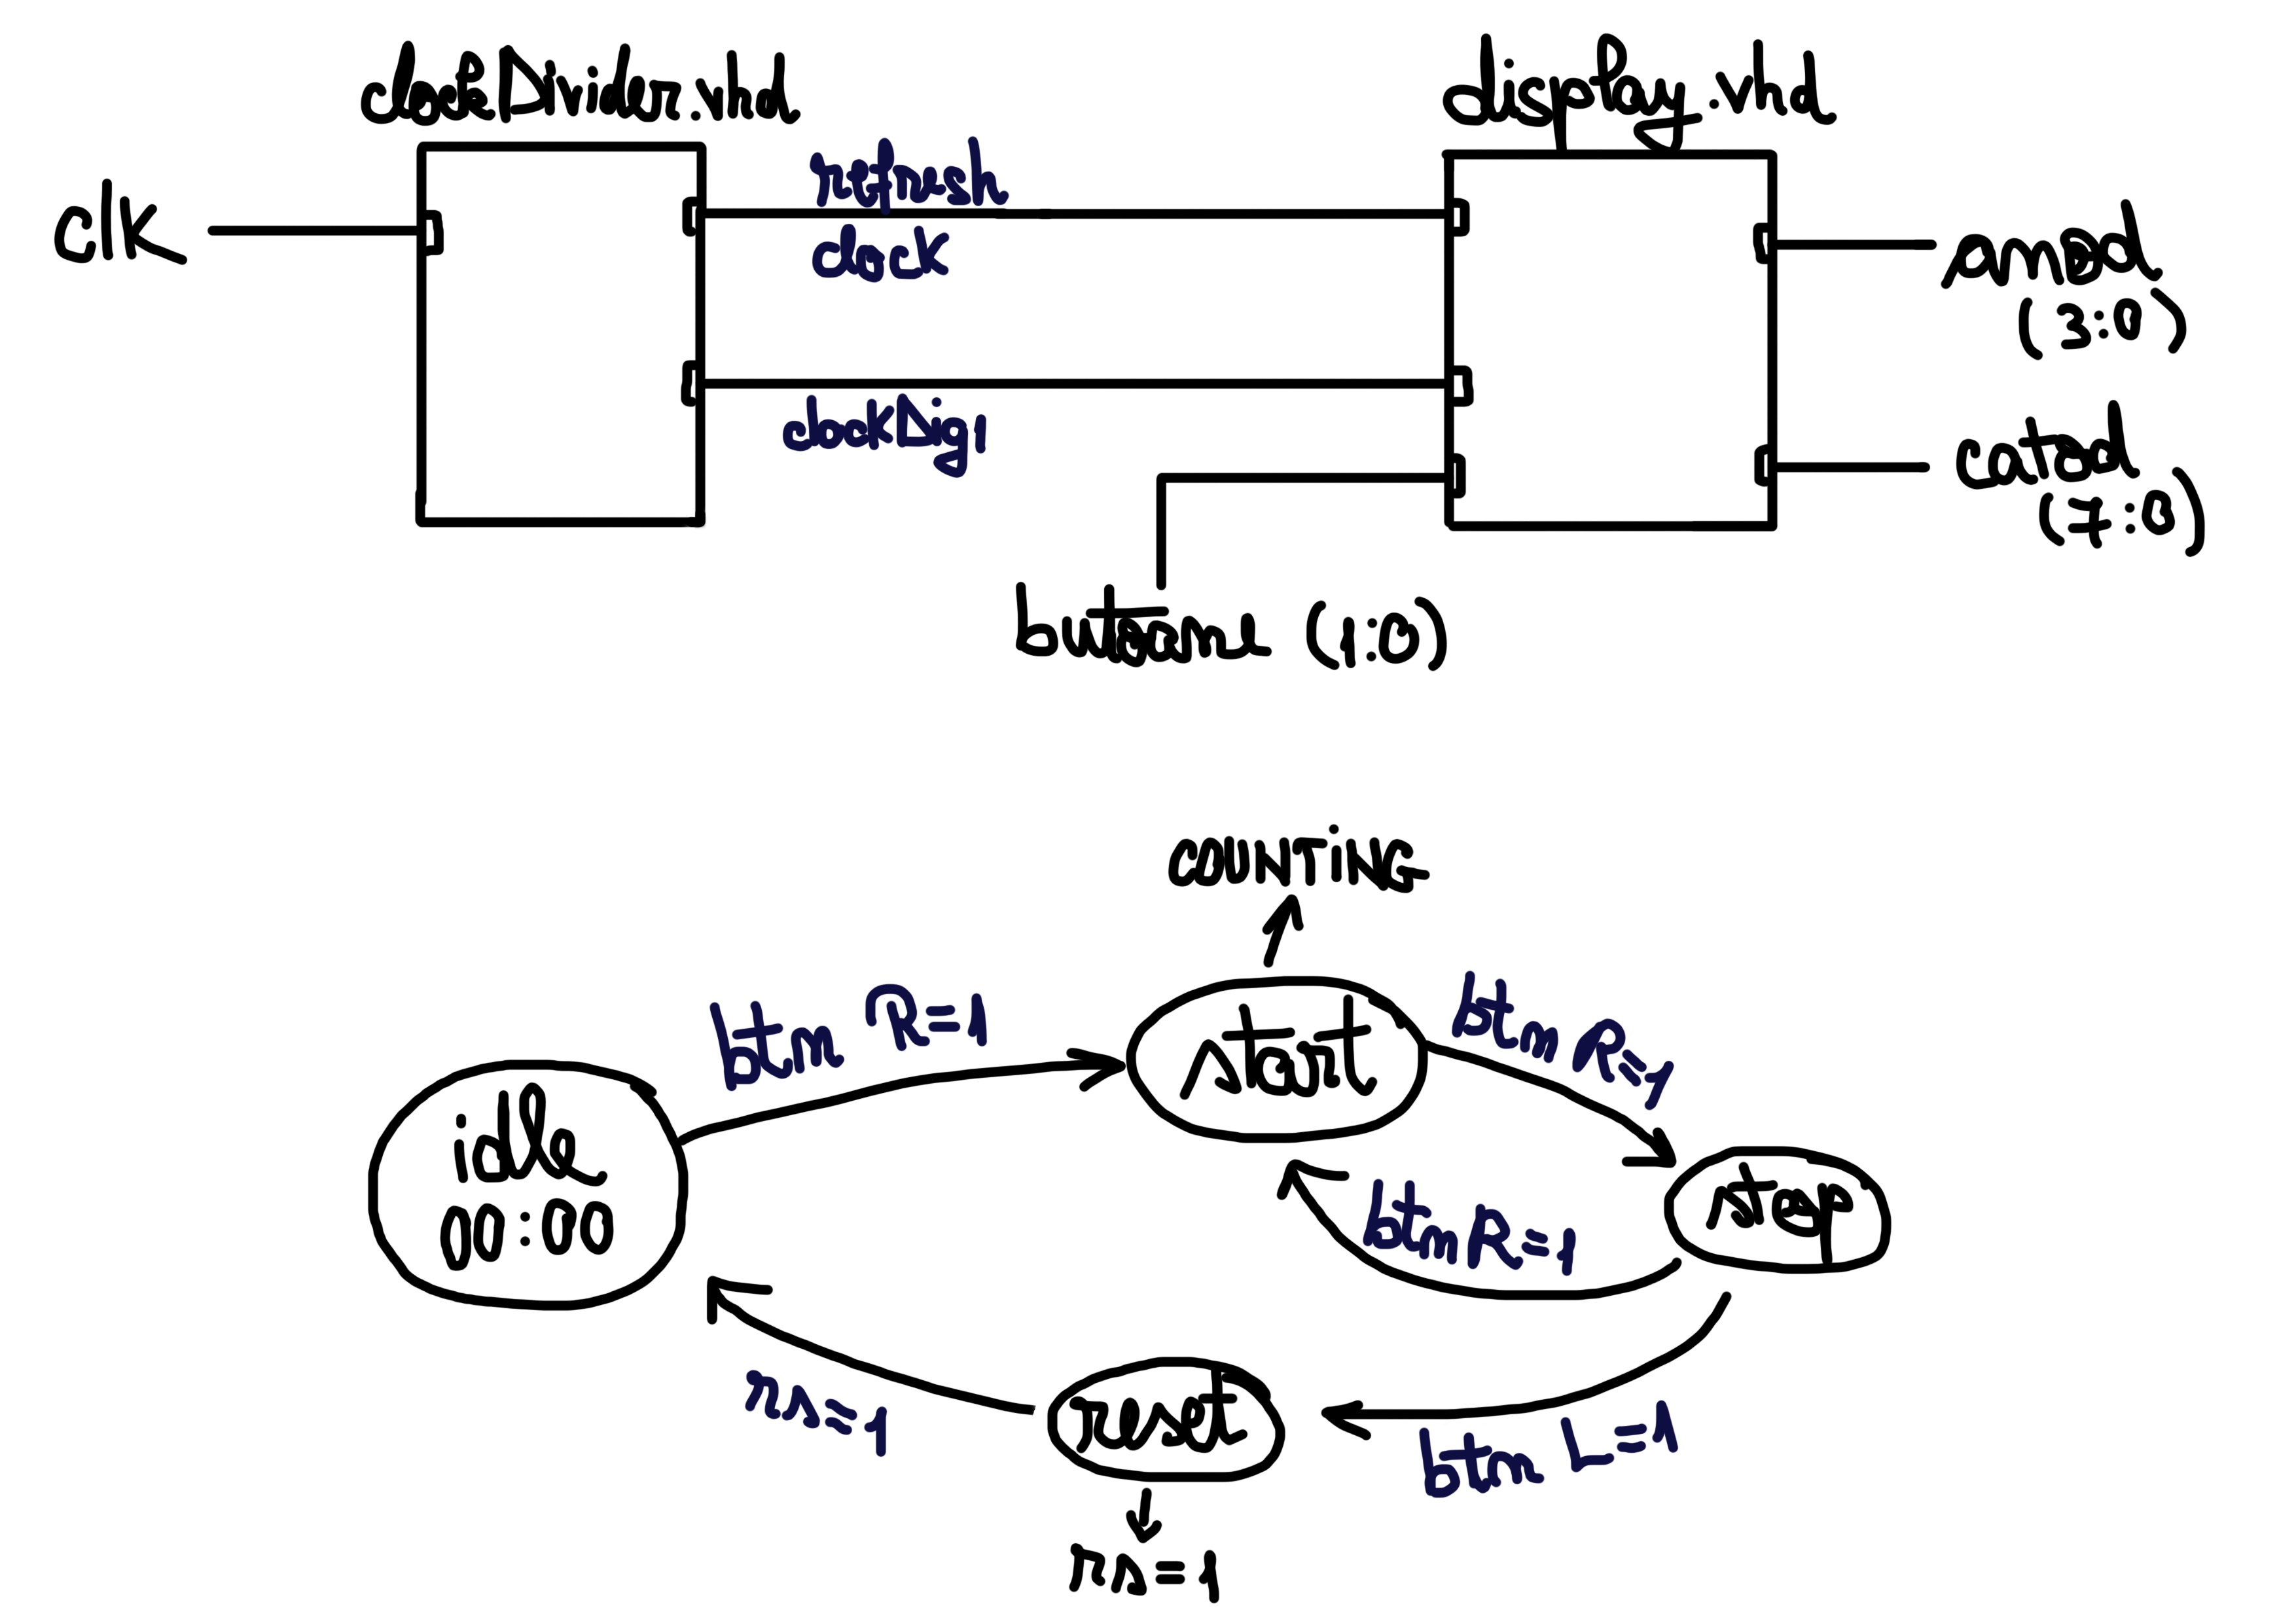 clockDivider.vhd
display.vhd
clk
refresh
clock
anod
(3:0)
clockDig1
catod
(7:0)
butoane (1:0)
COUNTING
btn R=1
start
btn R=1
idle
00:00
btn R=1
stop
rs=1
reset
btn L=1
rs=1